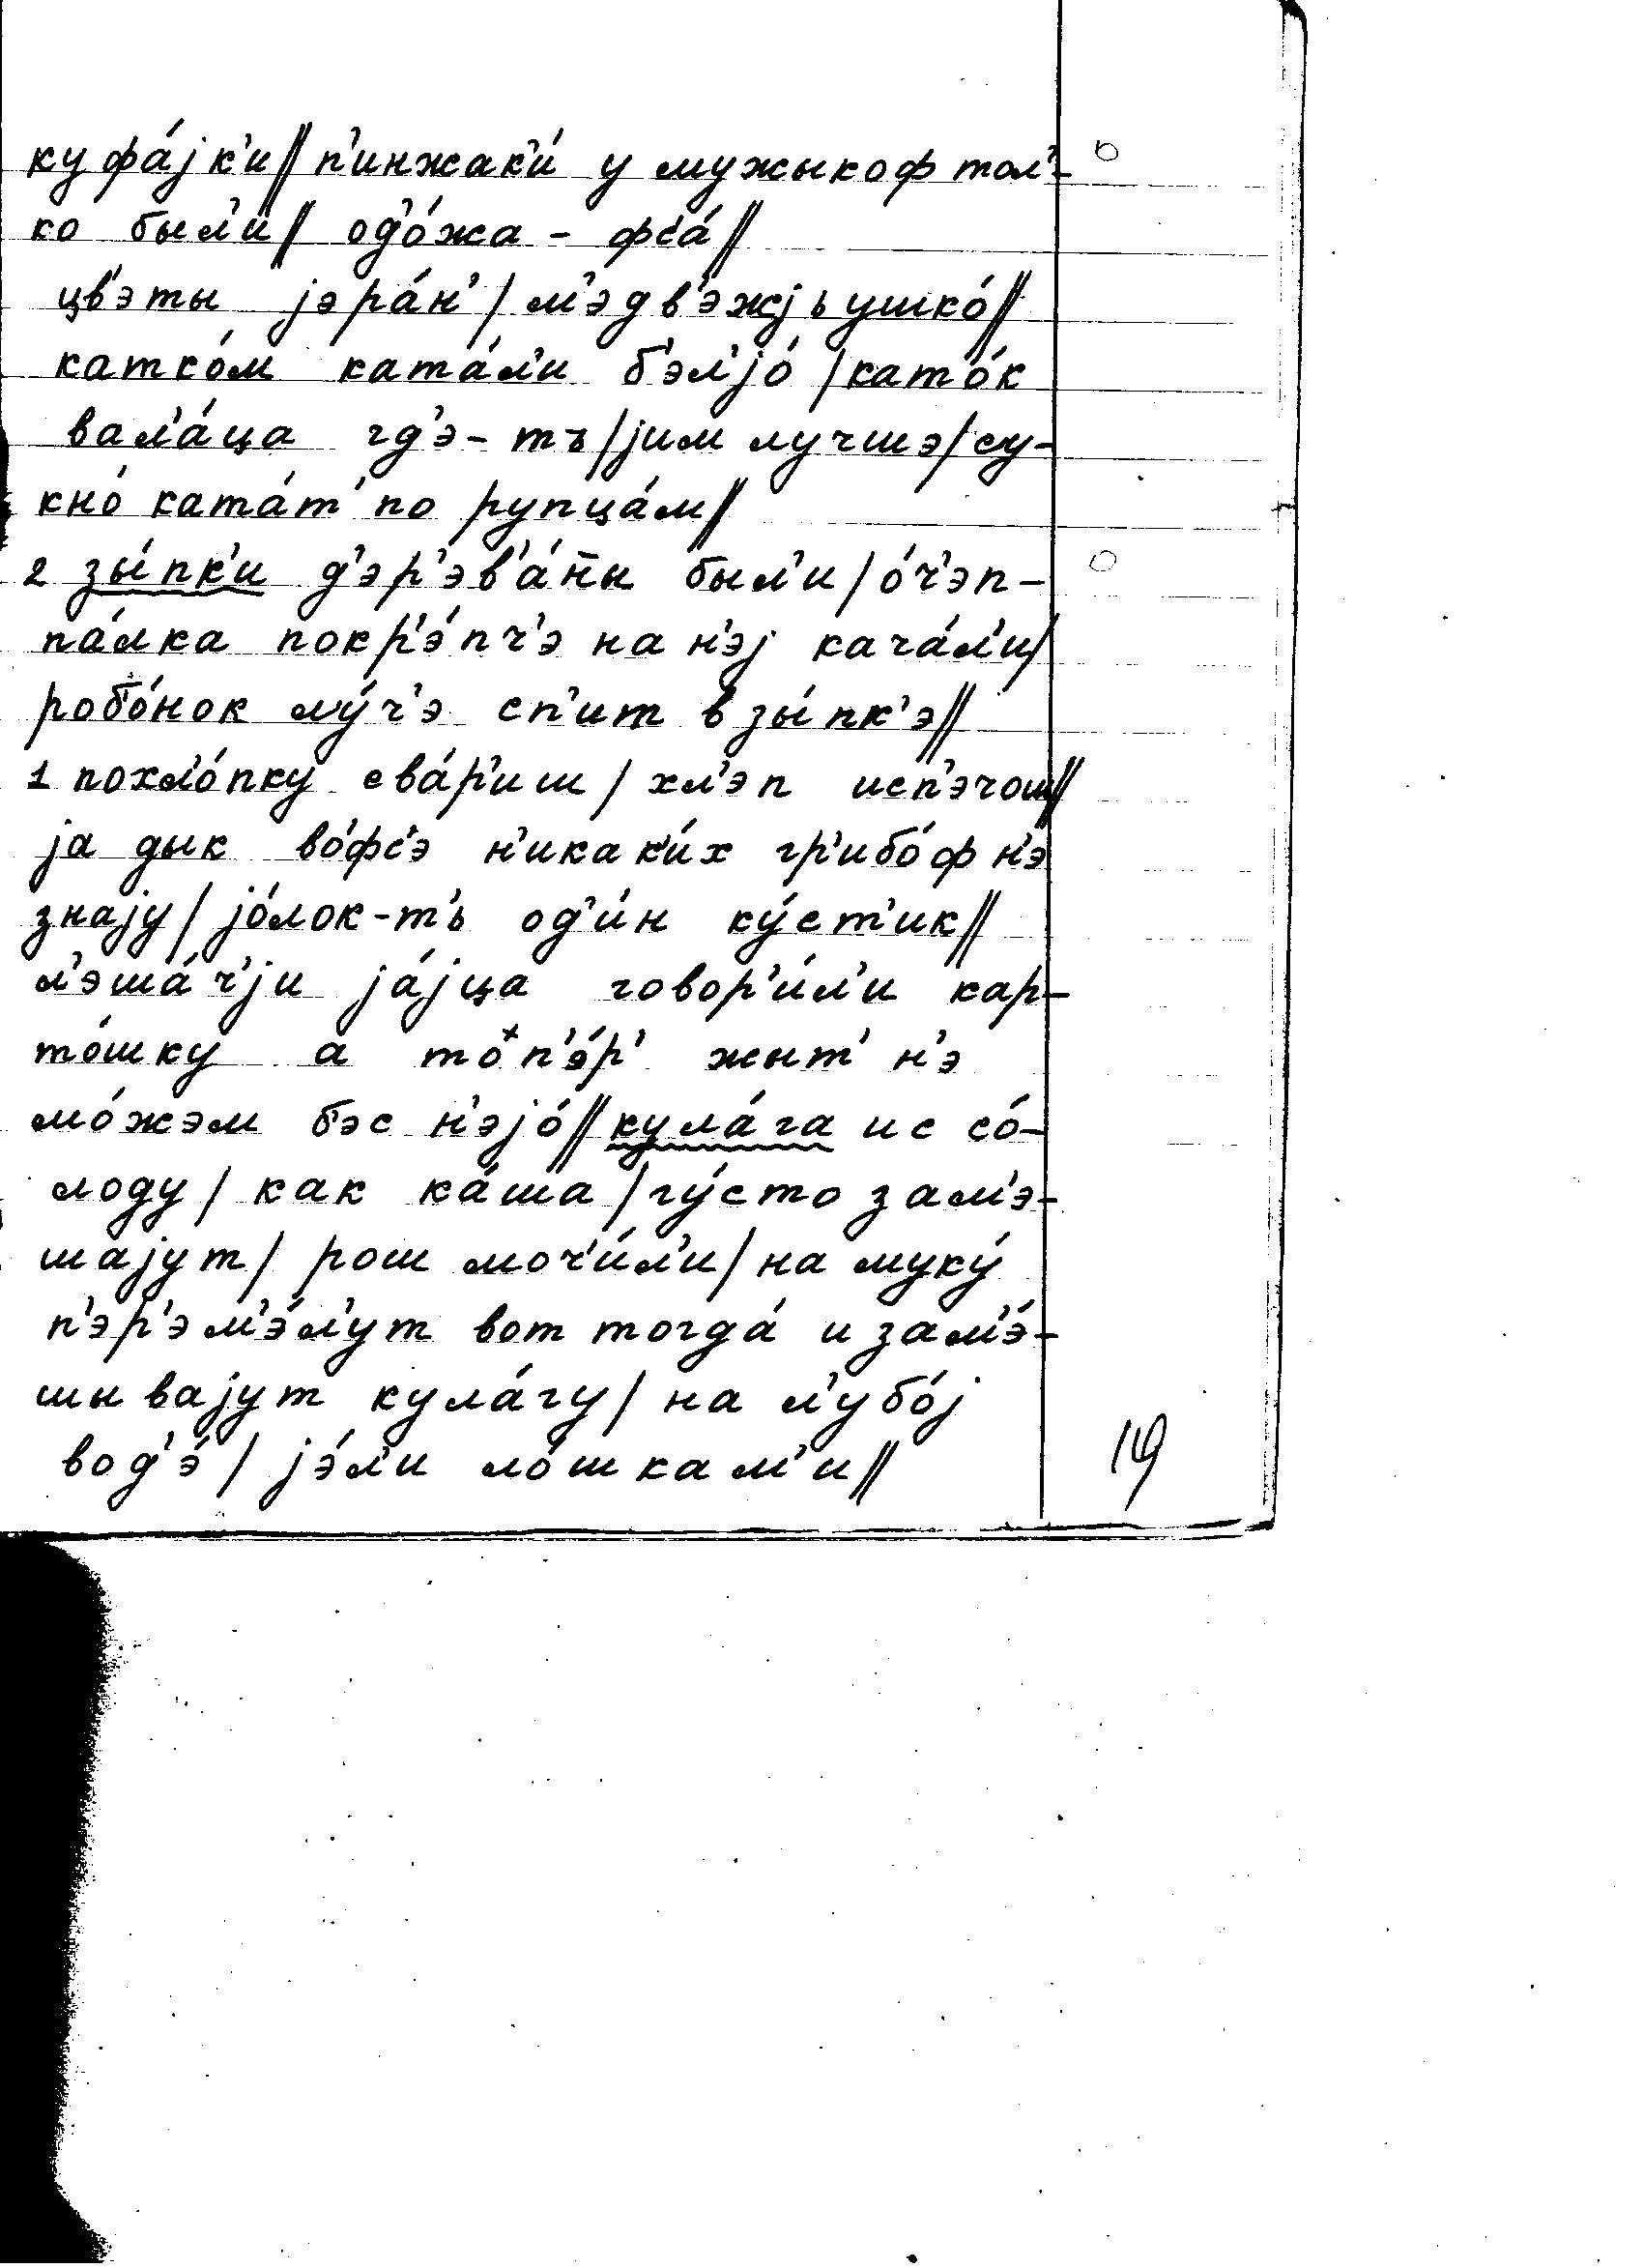 куфа́јк'и // п'инжак'и́ у мужыкоф тол'-
ко был'и́ / од'о́жа - фс'а́ //
цв'эты јэра́н' / м'эдв'эжјъ ушко́ //
катко́м ката́л'и б'эл'јо́ / като́к
вал'а́ца гд'э-тъ / јим лучшэ / су-
кно́ ката́т' по рупца́м //
2 зы́пк'и д'эр'эв'а́н̄ы был'и / о́ч'эп -
па́лка покр'э́пч'э на н'эј кача́л'и /
роб'о́нок лу́ч'э сп'ит в зы́пк'э //
1 похл'о́пку свар'иш / хл'эп исп'эчош //
ја дык во́фс'э н'икак'и́х гр'ибо́ф н'э
знају / јо́лок-тъ од'и́н ку́ст'ик //
л'эша́ч'ји ја́јца говор'и́л'и кар-
то́шку а то п'э́р' жыт' н'э
мо́жэм б'эс н'эјо́ // кула́га ис со́-
лоду / как ка́ша / гу́сто зам'э-
шајут / рош моч'и́л'и / на муку́
п'эр'эм'э́л'ут вот тогда́ и зам'э́-
шывајут кула́гу / на л'убо́ј
вод'э́ / јэ́л'и ло́шкам'и //
19